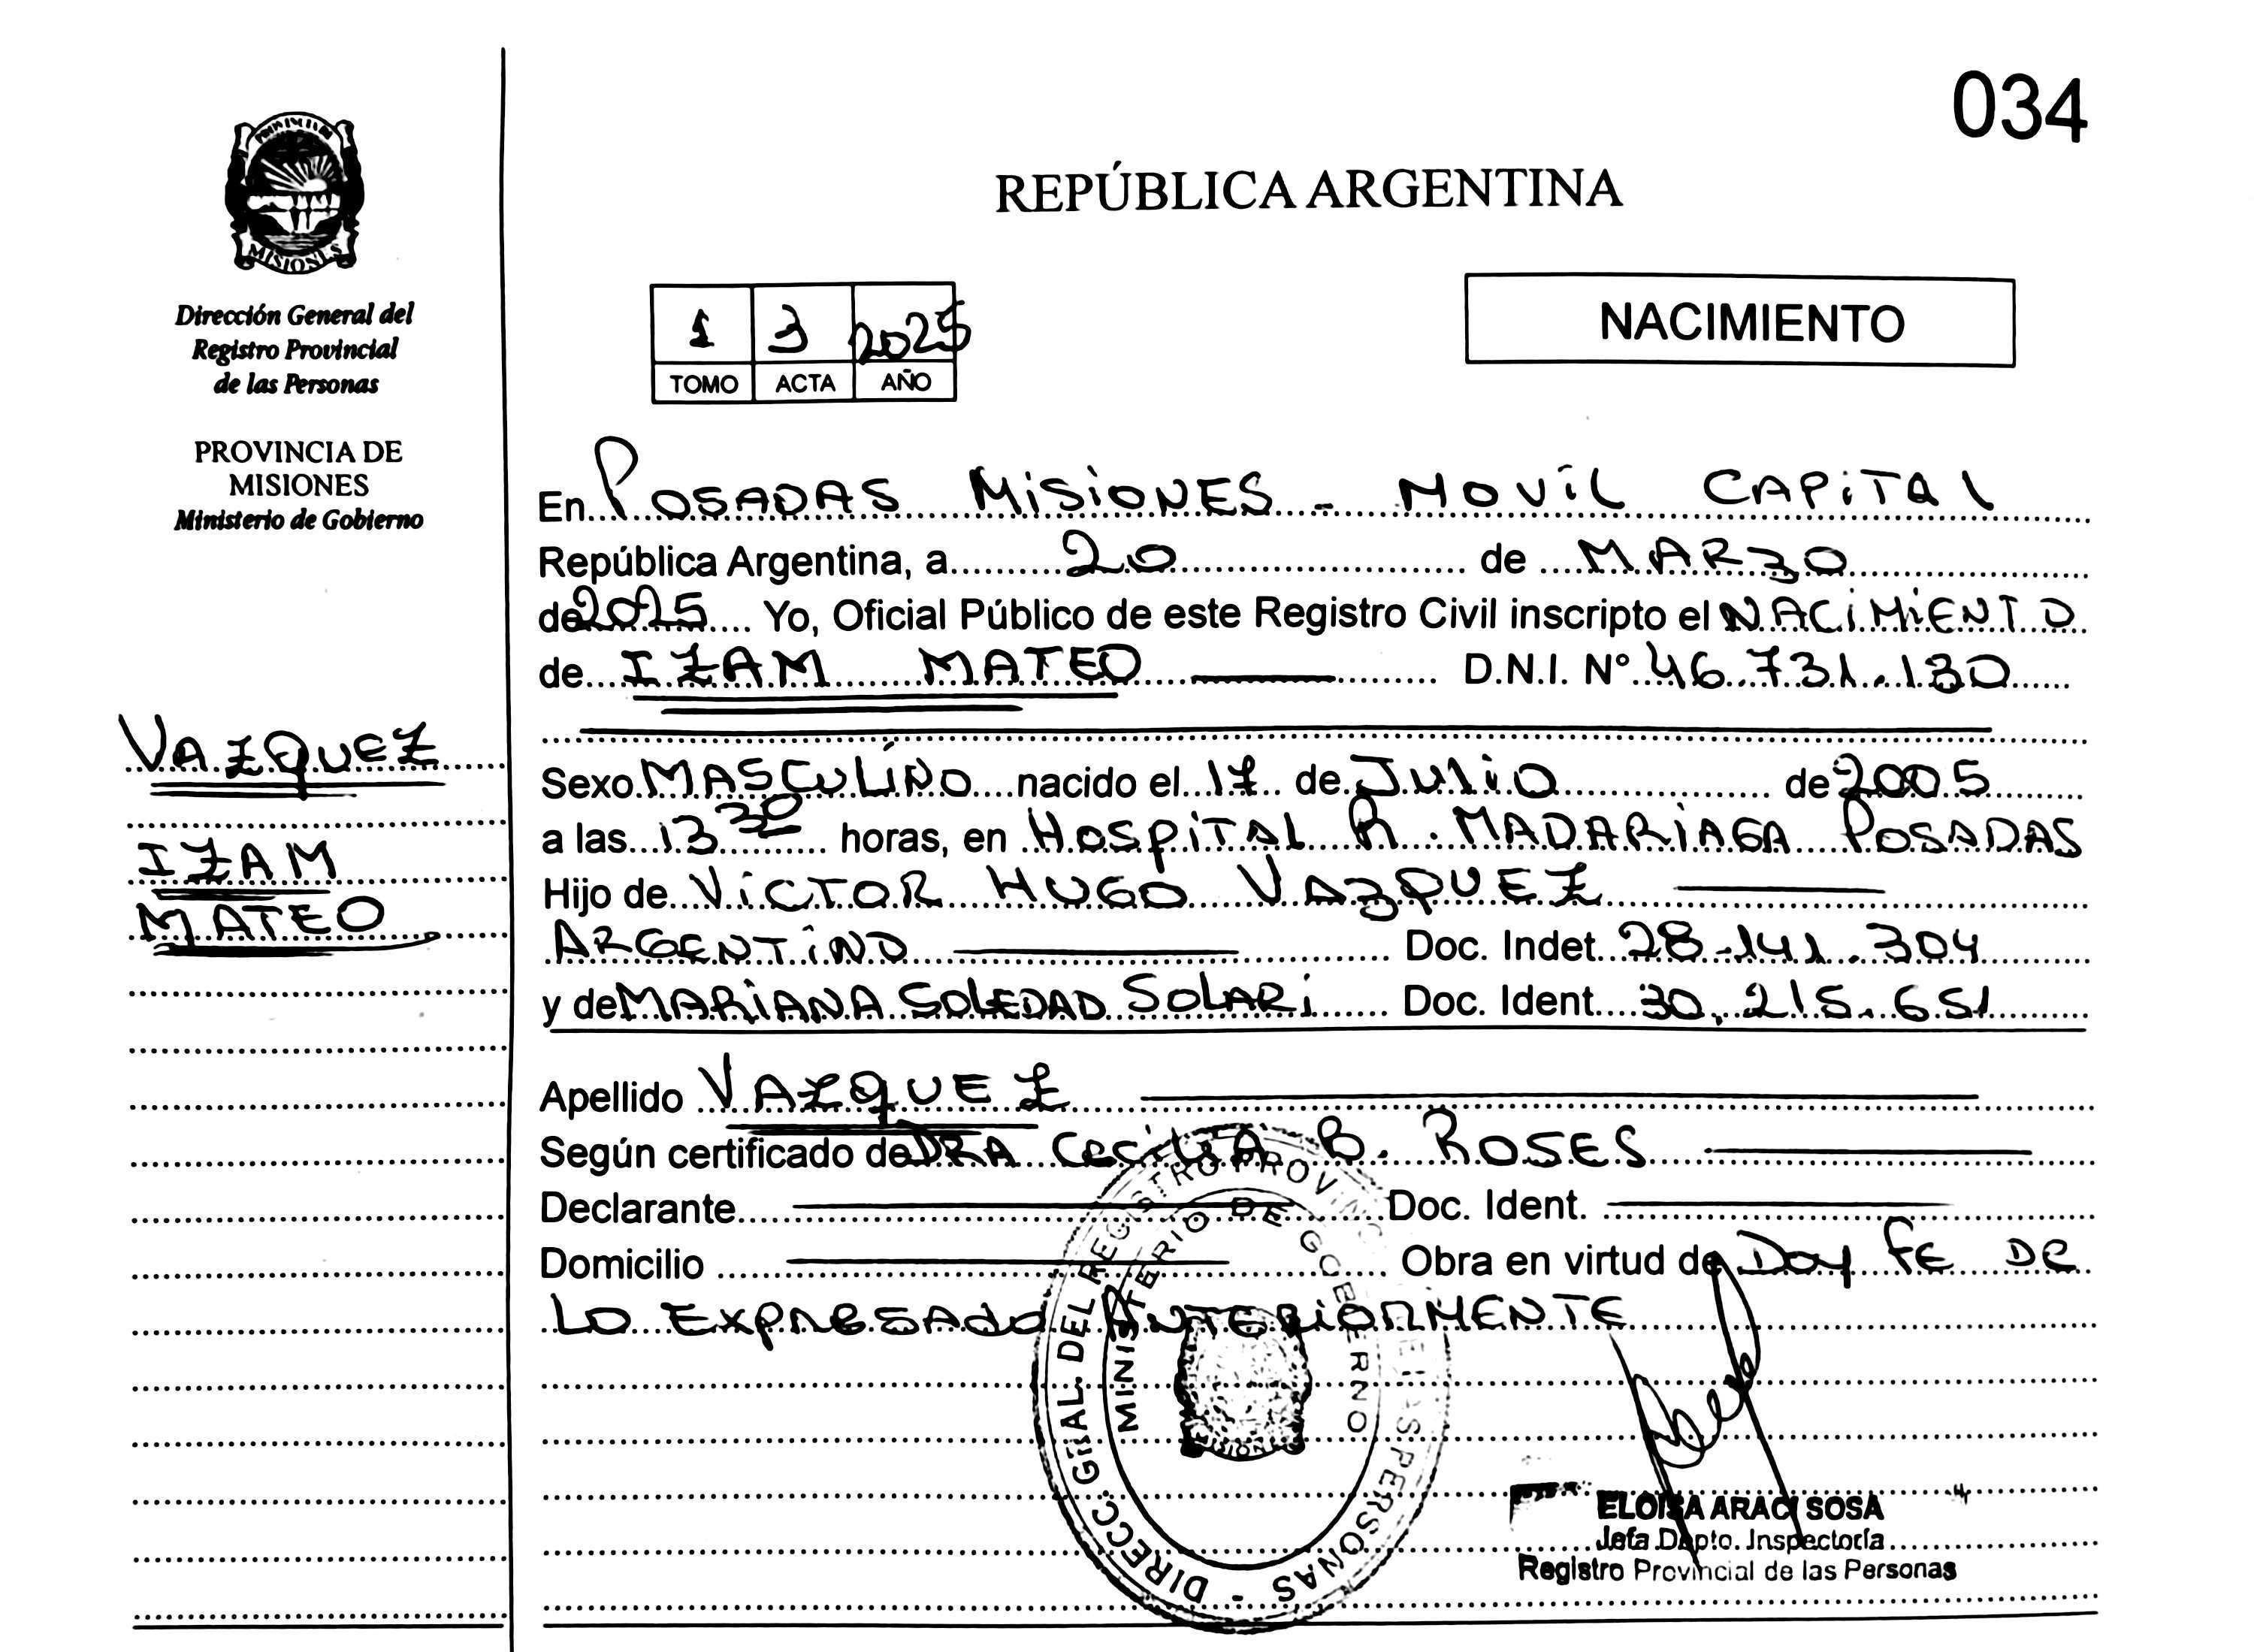 034
MISIONES
Dirección General del
Registro Provincial
de las Personas
PROVINCIA DE
MISIONES
Ministerio de Gobierno
VAZQUEZ
IZAM
MATEO
REPÚBLICA ARGENTINA
1 3 2025
TOMO ACTA AÑO
NACIMIENTO
En POSADAS MISIONES - MOVIL CAPITAL
República Argentina, a 20 de MARZO
de 2025 Yo, Oficial Público de este Registro Civil inscripto el NACIMIENTO
de IZAM MATEO D.N.I. Nº 46.731.130
Sexo MASCULINO nacido el 17 de JULIO de 2005
a las 13 30 horas, en HOSPITAL R. MADARIAGA POSADAS
Hijo de VICTOR HUGO VAZQUEZ
ARGENTINO Doc. Indet. 28.141.304
y de MARIANA SOLEDAD SOLARI Doc. Ident. 30.215.651
Apellido VAZQUEZ
Según certificado de DRA CECILIA B. ROSES
Declarante Doc. Ident.
Domicilio Obra en virtud de DOY FE DE
LO EXPRESADO ANTERIORMENTE
DIRECC. GRAL. DEL REGISTRO PROVINC. DE LAS PERSONAS -
MINISTERIO DE GOBIERNO
MISIONES
ELOISA ARACI SOSA
Jefa Dpto. Inspectoría
Registro Provincial de las Personas